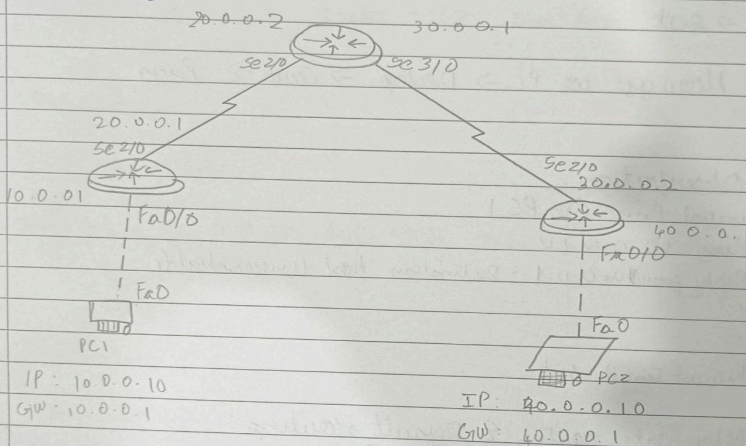 20.0.0.2
30.0.0.1
Se2/0
Se3/0
20.0.0.1
Se2/0
10.0.01
Fa0/0
Fa0
PC1
IP: 10.0.0.10
GW: 10.0.0.1
Se2/0
40.0.0.
Fa0/0
Fa0
PC2
IP: 40.0.0.10
GW: 40.0.0.1